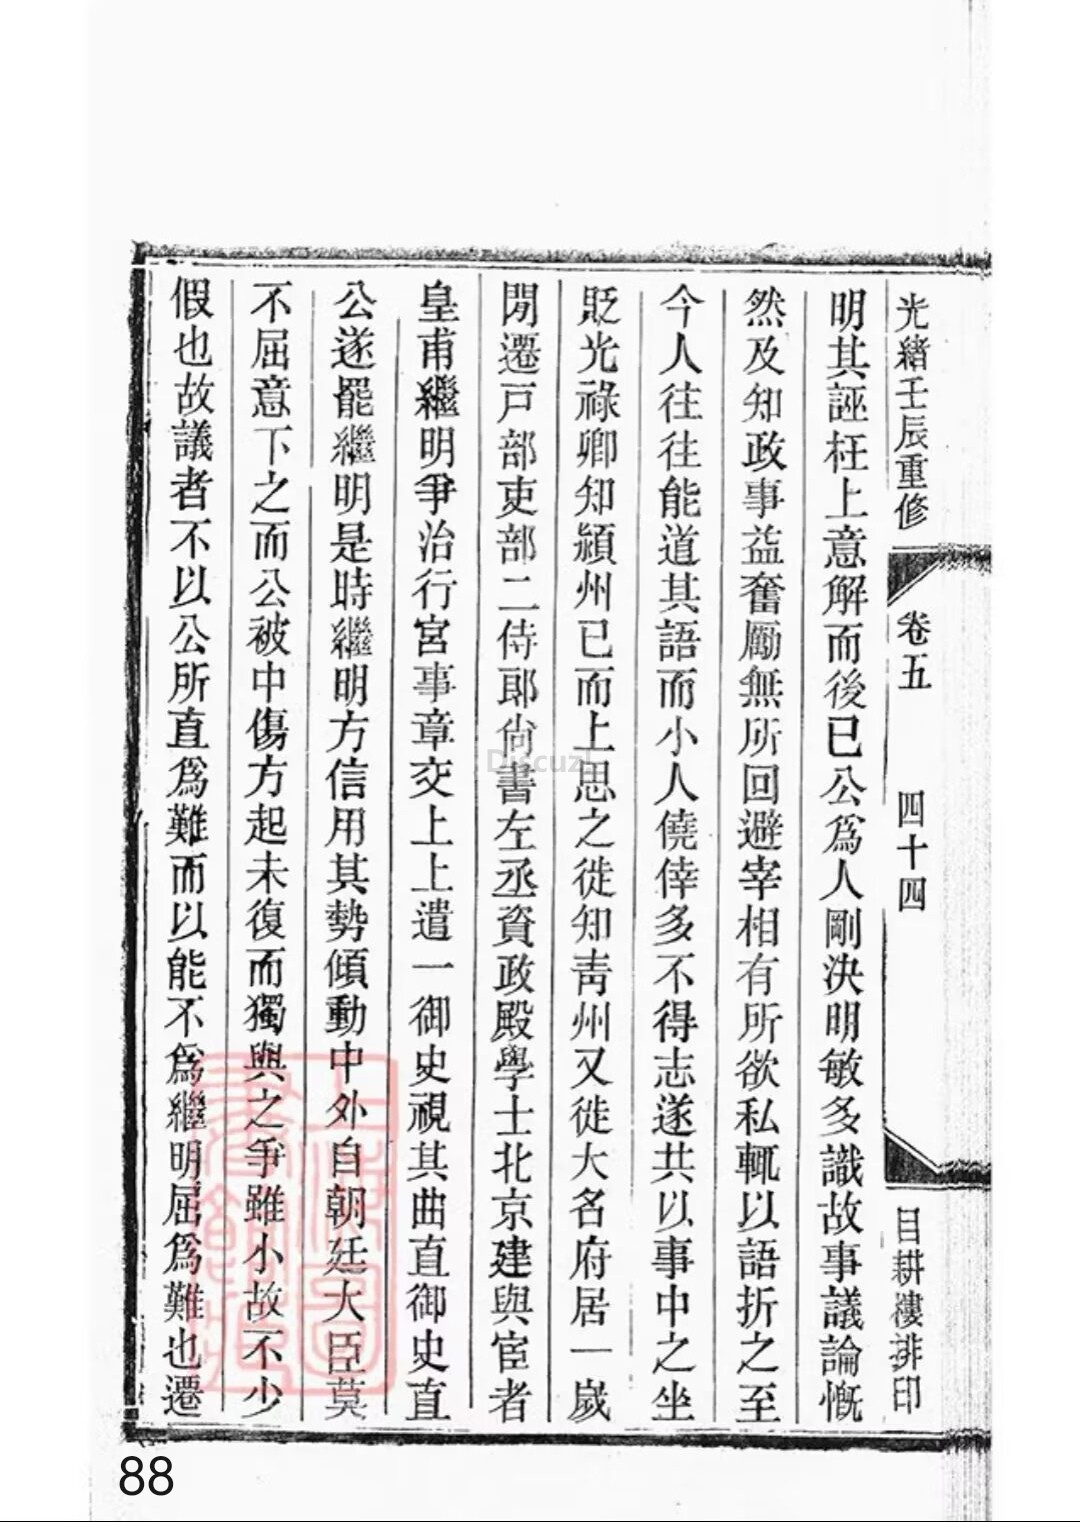 光緒壬辰重修 卷五 四十四 目耕樓排印
明其誣枉上意解而後已公爲人剛決明敏多識故事議論慨
然及知政事益奮勵無所回避宰相有所欲私輒以語折之至
今人往往能道其語而小人僥倖多不得志遂共以事中之坐
貶光祿卿知潁州已而上思之徙知青州又徙大名府居一歲
閒遷戸部吏部二侍郎尙書左丞資政殿學士北京建與宦者
皇甫繼明爭治行宮事章交上上遣一御史視其曲直御史直
公遂罷繼明是時繼明方信用其勢傾動中外自朝廷大臣莫
不屈意下之而公被中傷方起未復而獨與之爭雖小故不少
假也故議者不以公所直爲難而以能不爲繼明屈爲難也遷
上海圖書館藏
Discuz!
88